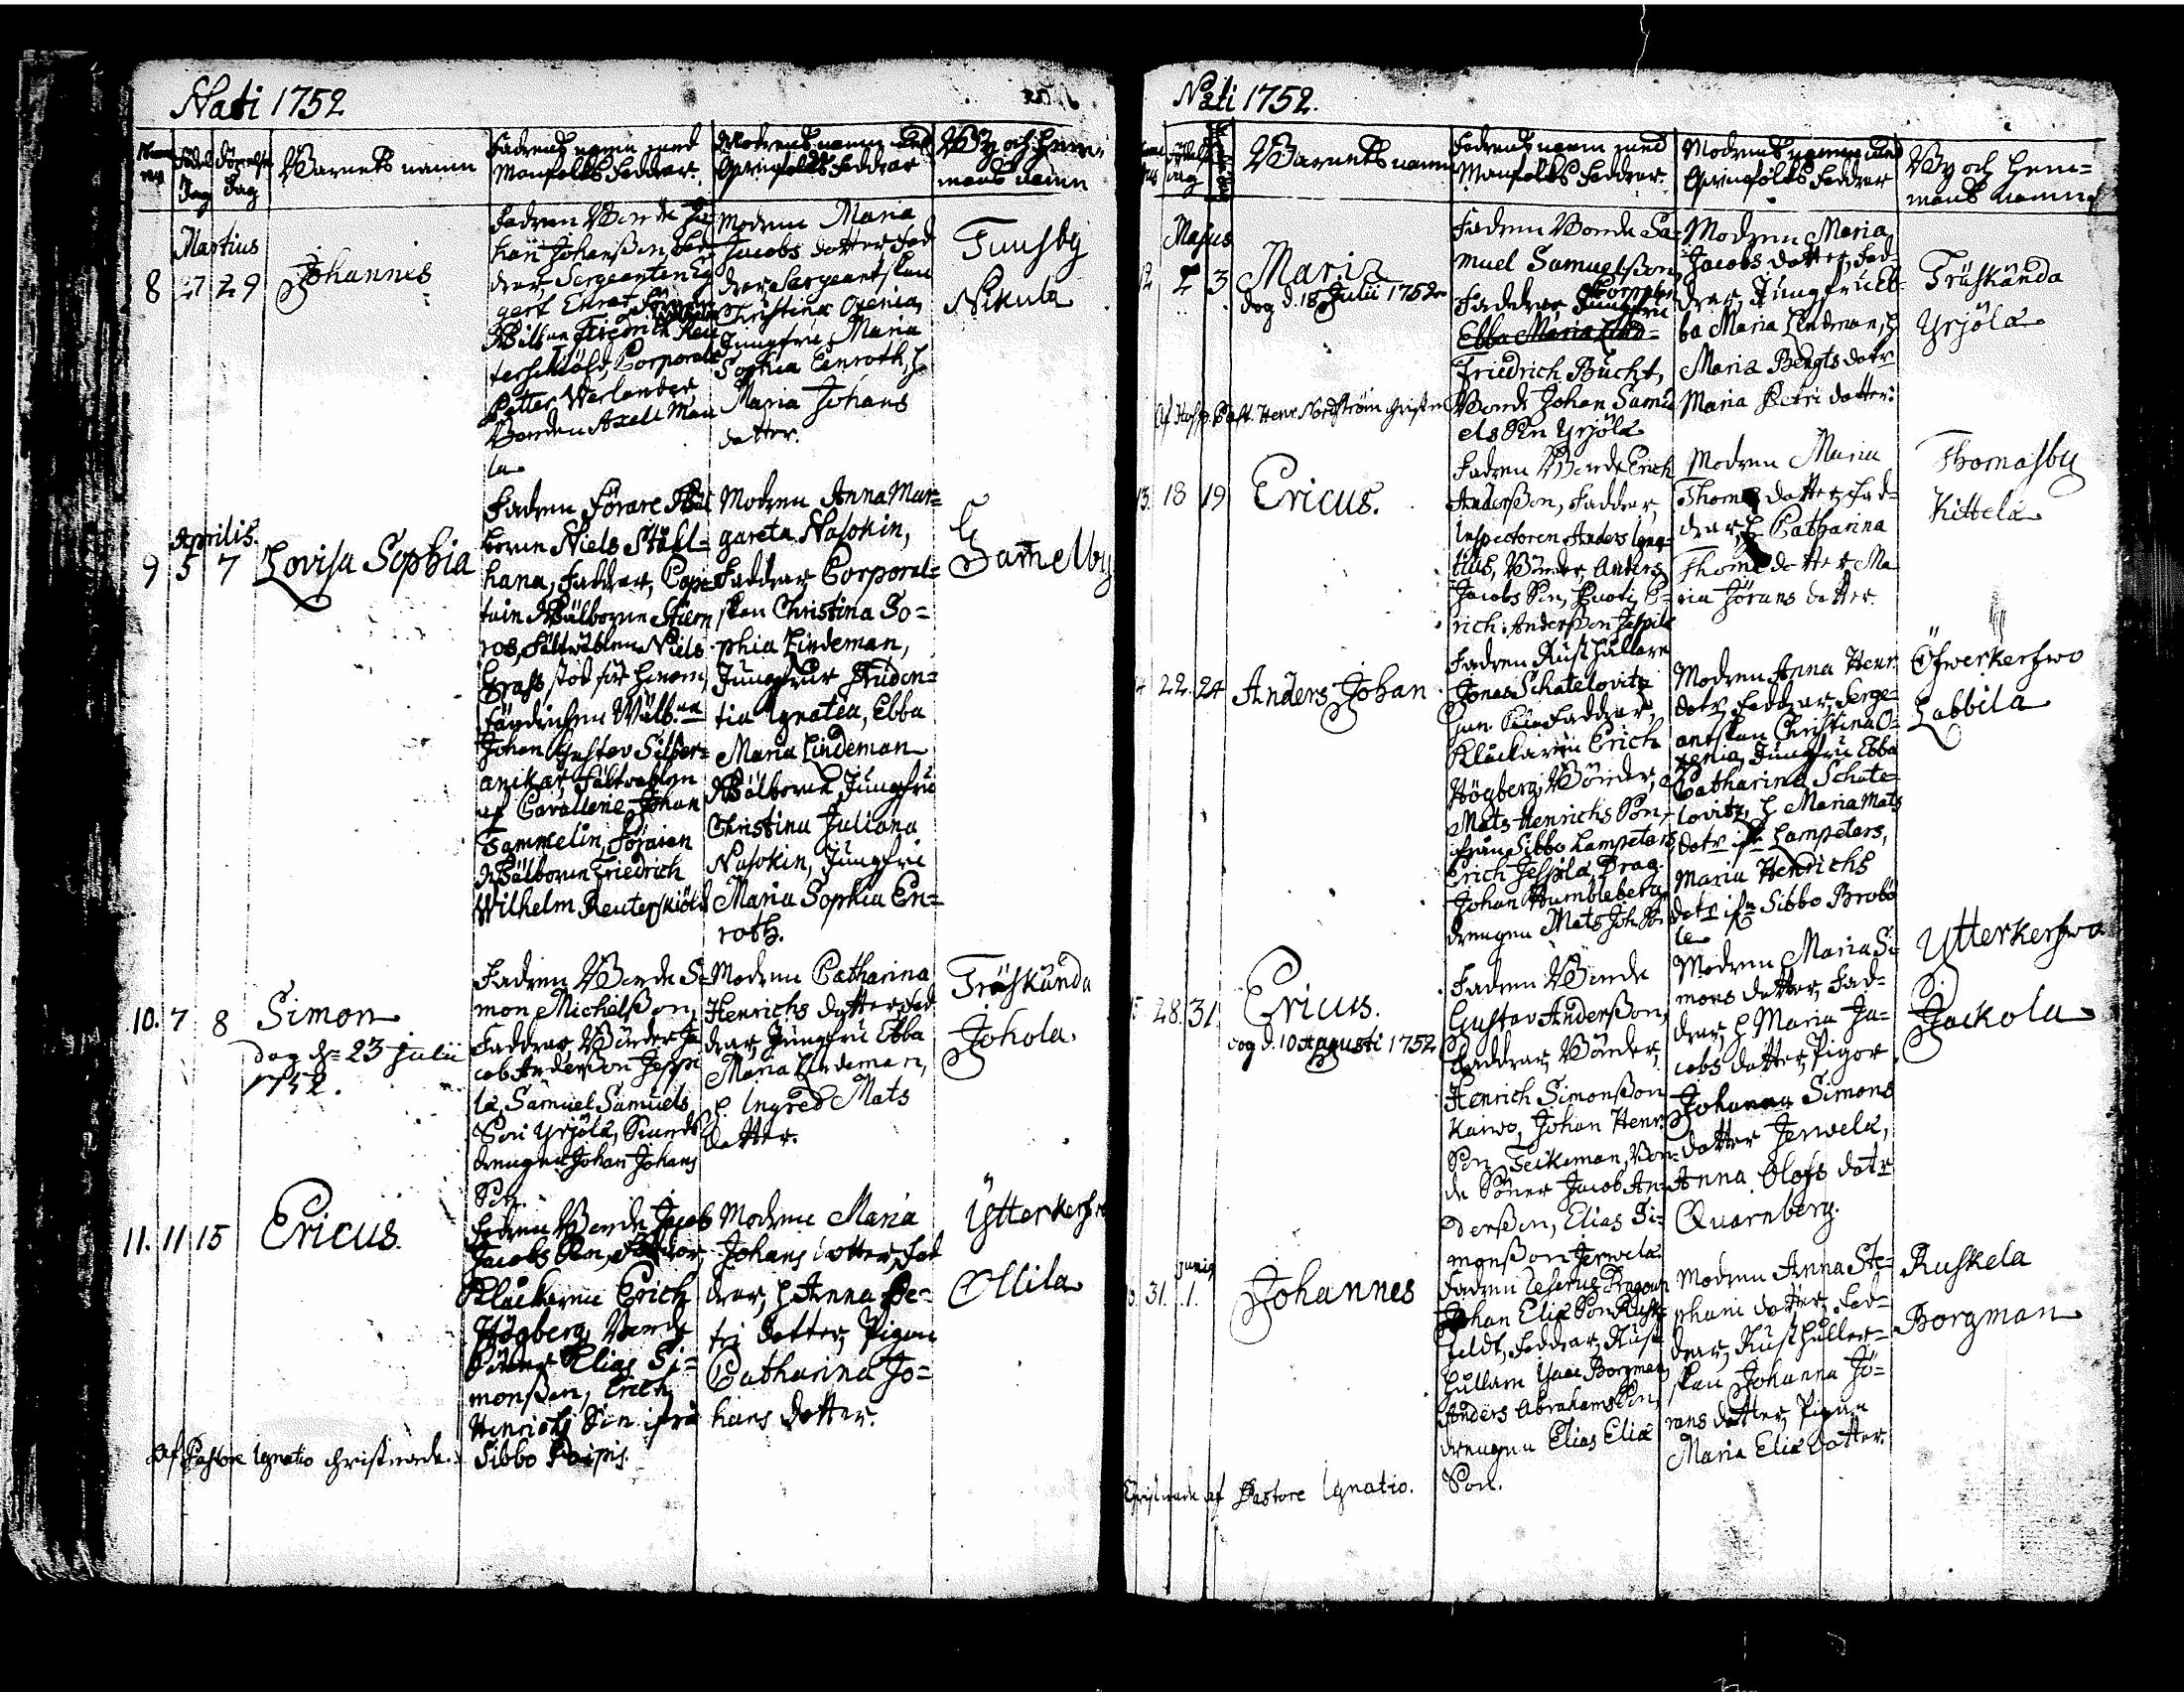 Nati 1752
Födelse Dag
Döpelse Dag
Barnets namn
Fadrens namn med
Manfolks Faddrar.
Modrens namn med
Qvinfolks Faddrar
By och Hem-
mans namn
Martius
8 27 29 Johannes
Fadren Bonde Jo-
han Johansson, Fad-
drar Sergeanten
Friedrich Reu
terskiöld, Corporalen
Petter Werlander
Bonden Axel Man
la
Modren Maria
Jacobs dotter, Fad
drar Sergeantskan
Christina Oxenia,
Jungfru Maria
Sophia Enroth, H.
Maria Johans
dotter.
Tuusby
Nikula
Aprilis.
9 5 7 Lovisa Sophia
Fadren Förare Wäl
borne Niels Stål-
hana, Faddrar, Capi-
tain Wälborne Stiern
ros, Fältwäblen Niels
Grass stod för honom,
Fändrichen Wälb.ne
Johan Gustav Silfver-
Fältwäblen
af Cavallerie Johan
Tammelin, Föraren
Wälborne Friedrich
Wilhelm Reuterskiöld
Modren Anna Mar-
gareta Nasokin,
Faddrar Corporal-
skan Christina So-
phia Lindeman,
Jungfrur Pruden-
tia Ignatea, Ebba
Maria Lindeman
Wälborne Jungfru
Christina Juliana
Nasokin, Jungfru
Maria Sophia En-
roth.
Gamelby
10. 7 8 Simon
dog d. 23 Julii
1752.
Fadren Bonde Si-
mon Michelsson,
Faddrar Bönder Ja
cob Andersson Jeppi
lä, Samuel Samuels
Son Yrjölä,
drengen Johan Johans
Son.
Modren Catharina
Henrichs dotter, Fad
drar, Jungfru Ebba
Maria Lindeman,
H. Ingred Mats
dotter.
Träskända
Jokola.
11. 11 15 Ericus.
Fadren Bonde Jacob
Jacobs Son, Faddrar,
Klåckaren Erich
Högberg, Bonde
Söner Elias Si-
monsson, Erich
Henrichs Son ifrå
Sibbo
Modren Maria
Johans dotter, Fad
drar, H. Anna Pe-
tri dotter, Pigan
Catharina Jo-
hans dotter.
Ytterkerfwo
Ollila
Af Pastore Ignatio christnade.
Nati 1752.
Barnets namn
Fadrens namn med
Manfolks Faddrar.
Modrens namn med
Qvinfolks Faddrar
By och Hem-
mans namn
Majus
12 2 3 Maria
dog d. 18 Julii 1752
Fadren Bonde Sa-
muel Samuelsson,
Faddrar,
Ebba Maria Lind-
Friedrich Bucht,
Bonde Johan Samu
els Son Yrjölä
Modren Maria
Jacobs dotter, Fad-
drar, Jungfru Eb-
ba Maria Lindeman, H
Maria Bengts dotr
Maria Petri dotter.
Träskända
Yrjölä
Past. Henr. Nordström christn
13. 18 19 Ericus.
Fadren Bonde Erich
Andersson, Faddrar,
Inspectoren Anders Igna-
tius, Bönder Anders
Jacobs Son, E-
rich Andersson Jeppilä
Modren Maria
Thomæ dotter, Fad-
drar, H Catharina
Thomæ dotter, Ma
ria Jörans dotter.
Thomasby
Kittelä
22. 24 Anders Johan
Fadren Rusthållare
Jonas Schatelovitz
Faddrar,
Klåckaren Erich
Högberg, Bönder,
Mats Henrichs Son,
ifrån Sibbo Lampeters,
Erich Jeppilä, Drag.
Johan Humbleberg
drengen Mats Joh. Son
Modren Anna Henr.
dotr, Faddrar, Serge-
antskan Christina O-
xenia, Jungfru Ebba
Catharina Schate-
lovitz, H Maria Mats
dotr ifn Lampeters,
Maria Henrichs
dotr ifn Sibbo Brobö
le
Öfwerkerfwo
Labbila
28. 31. Ericus.
dog d. 10 Augusti 1752
Fadren Bonde
Gustav Andersson,
Faddrar, Bönder,
Henrich Simonsson
Karwo, Johan Henr.
Son Teikeman, Bon-
de Söner Jacob An-
dersson, Elias Si-
monsson Jerwelä
Modren Maria Si
mons dotter, Fad-
drar, H Maria Ja-
cobs dotter, Pigor
Johanna Simons
dotter Jerwelä,
Anna Olofs dotr
Quarnberg.
Ytterkerfwo
Jackola
Junius
31. 1. Johannes
Fadren Dragoun
Johan Eliæ Son Rusk-
feldt, Faddrar, Rust
hållarn Isaac Borgman,
Anders Abrahams Son,
drengen Elias Eliæ
Son.
Modren Anna Ste-
phani dotter, Fad-
drar, Rusthåller-
skan Johanna Jö-
rans dotter, Pigan
Maria Eliæ dotter.
Ruskela
Borgman
Christnade af Pastore Ignatio.